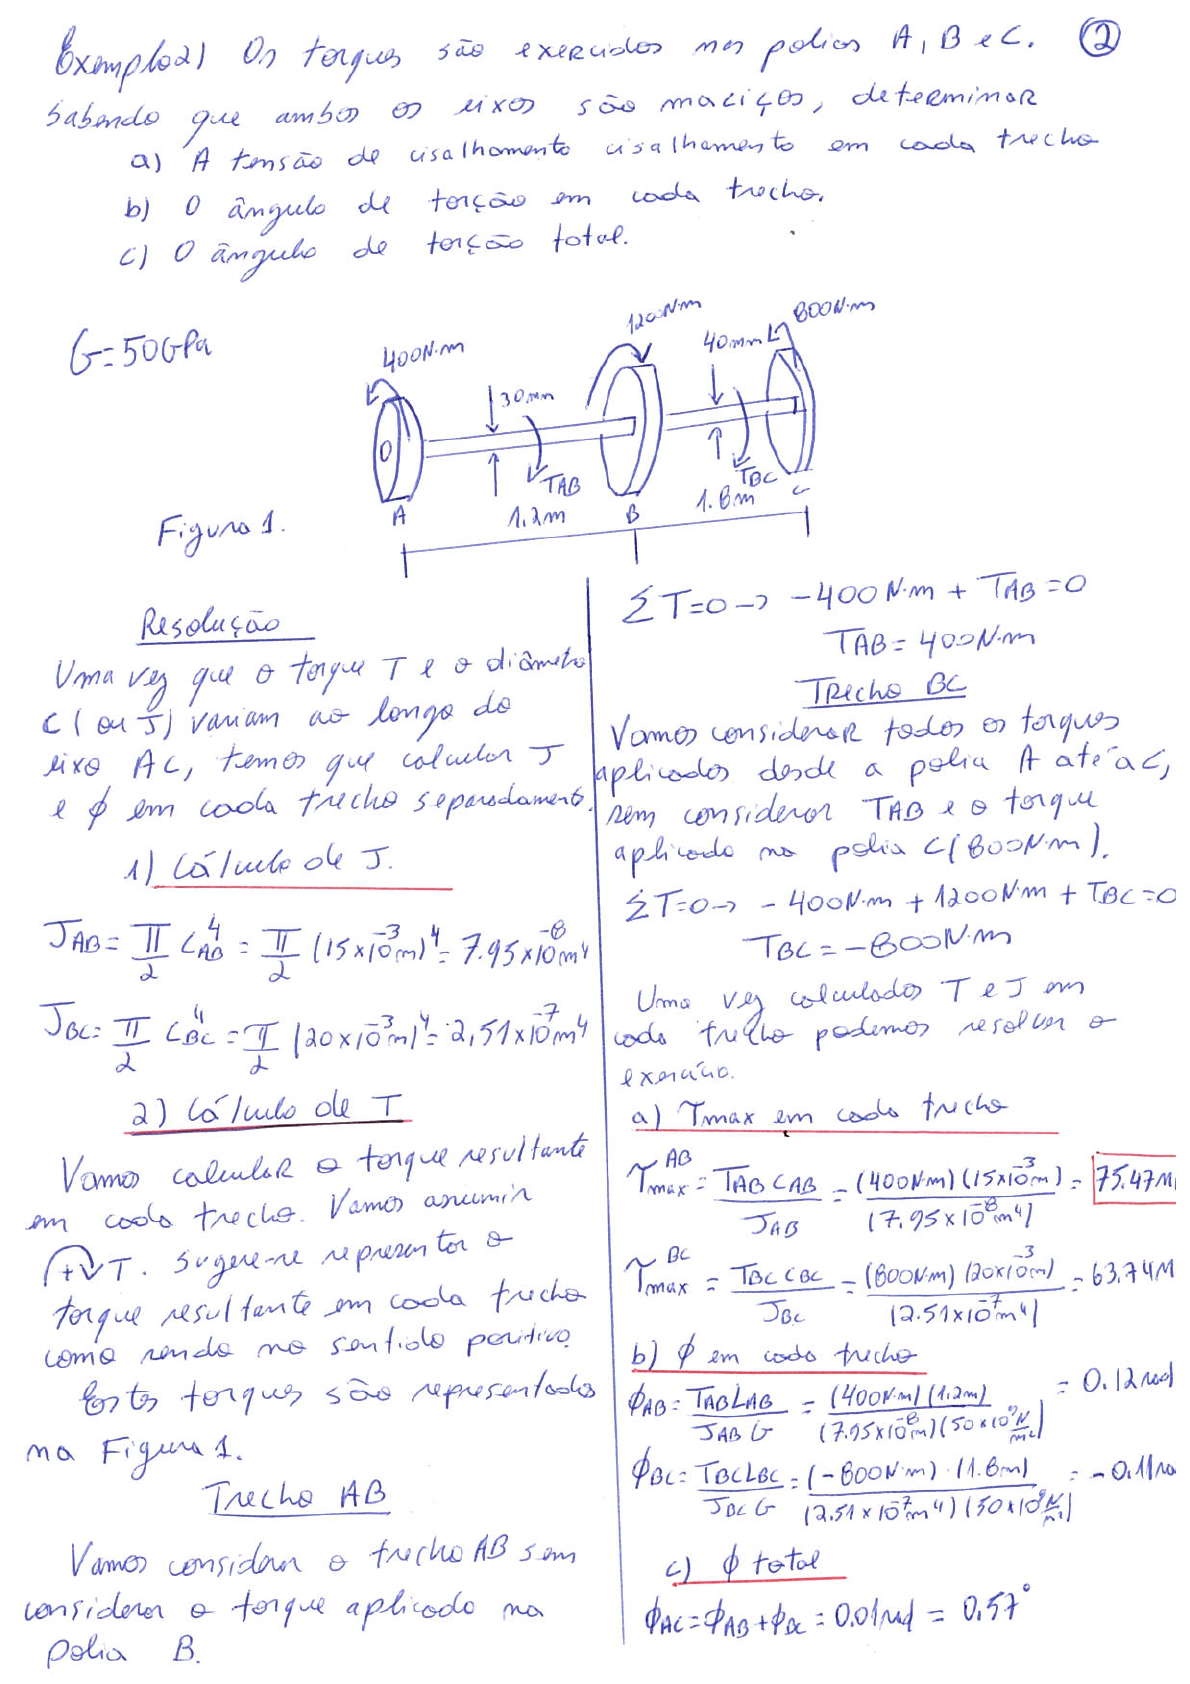 Exemplo 2) Os torques são exercidos nas polias A, B e C. ②
Sabendo que ambos os eixos são maciços, determinar
a) A tensão de cisalhamento cisalhamento em cada trecho
b) O ângulo de torção em cada trecho.
c) O ângulo de torção total.
G=50GPa
400N·m
1200N·m
800N·m
30mm
40mm
TAB
TBC
A
1.2m
B
1.8m
C
Figura 1.
Resolução
Uma vez que o torque T e o diâmetro
C (ou J) variam ao longo do
eixo AC, temos que calcular J
e ϕ em cada trecho separadamente.
1) Cálculo de J.
J_AB = π/2 C_AB^4 = π/2 (15x10^-3 m)^4 = 7.95x10^-8 m^4
J_BC = π/2 C_BC^4 = π/2 (20x10^-3 m)^4 = 2,51x10^-7 m^4
2) Cálculo de T
Vamos calcular o torque resultante
em cada trecho. Vamos assumir
+ T. Sugere-se representar o
torque resultante em cada trecho
como sendo no sentido positivo.
Estes torques são representados
na Figura 1.
Trecho AB
Vamos considerar o trecho AB sem
considerar o torque aplicado na
polia B.
ΣT=0 → -400N·m + TAB=0
TAB= 400N·m
Trecho BC
Vamos considerar todos os torques
aplicados desde a polia A até a C,
sem considerar TAB e o torque
aplicado na polia C (800N·m).
ΣT=0 → -400N·m + 1200N·m + TBC=0
TBC = -800N·m
Uma vez calculados T e J em
cada trecho podemos resolver o
exercício.
a) τmax em cada trecho
τ_max^AB = TAB CAB / JAB = (400N·m)(15x10^-3 m) / (7.95x10^-8 m^4) = 75.47M
τ_max^BC = TBC CBC / JBC = (800N·m)(20x10^-3 m) / (2.51x10^-7 m^4) = 63.74M
b) ϕ em cada trecho
ϕAB = TAB LAB / JAB G = (400N·m)(1.2m) / (7.95x10^-8 m^4)(50x10^9 N/m²) = 0.12rad
ϕBC = TBC LBC / JBC G = (-800N·m)·(1.8m) / (2.51x10^-7 m^4)(50x10^9 N/m²) = -0.11ra
c) ϕ total
ϕAC = ϕAB + ϕBC = 0.01rad = 0,57°